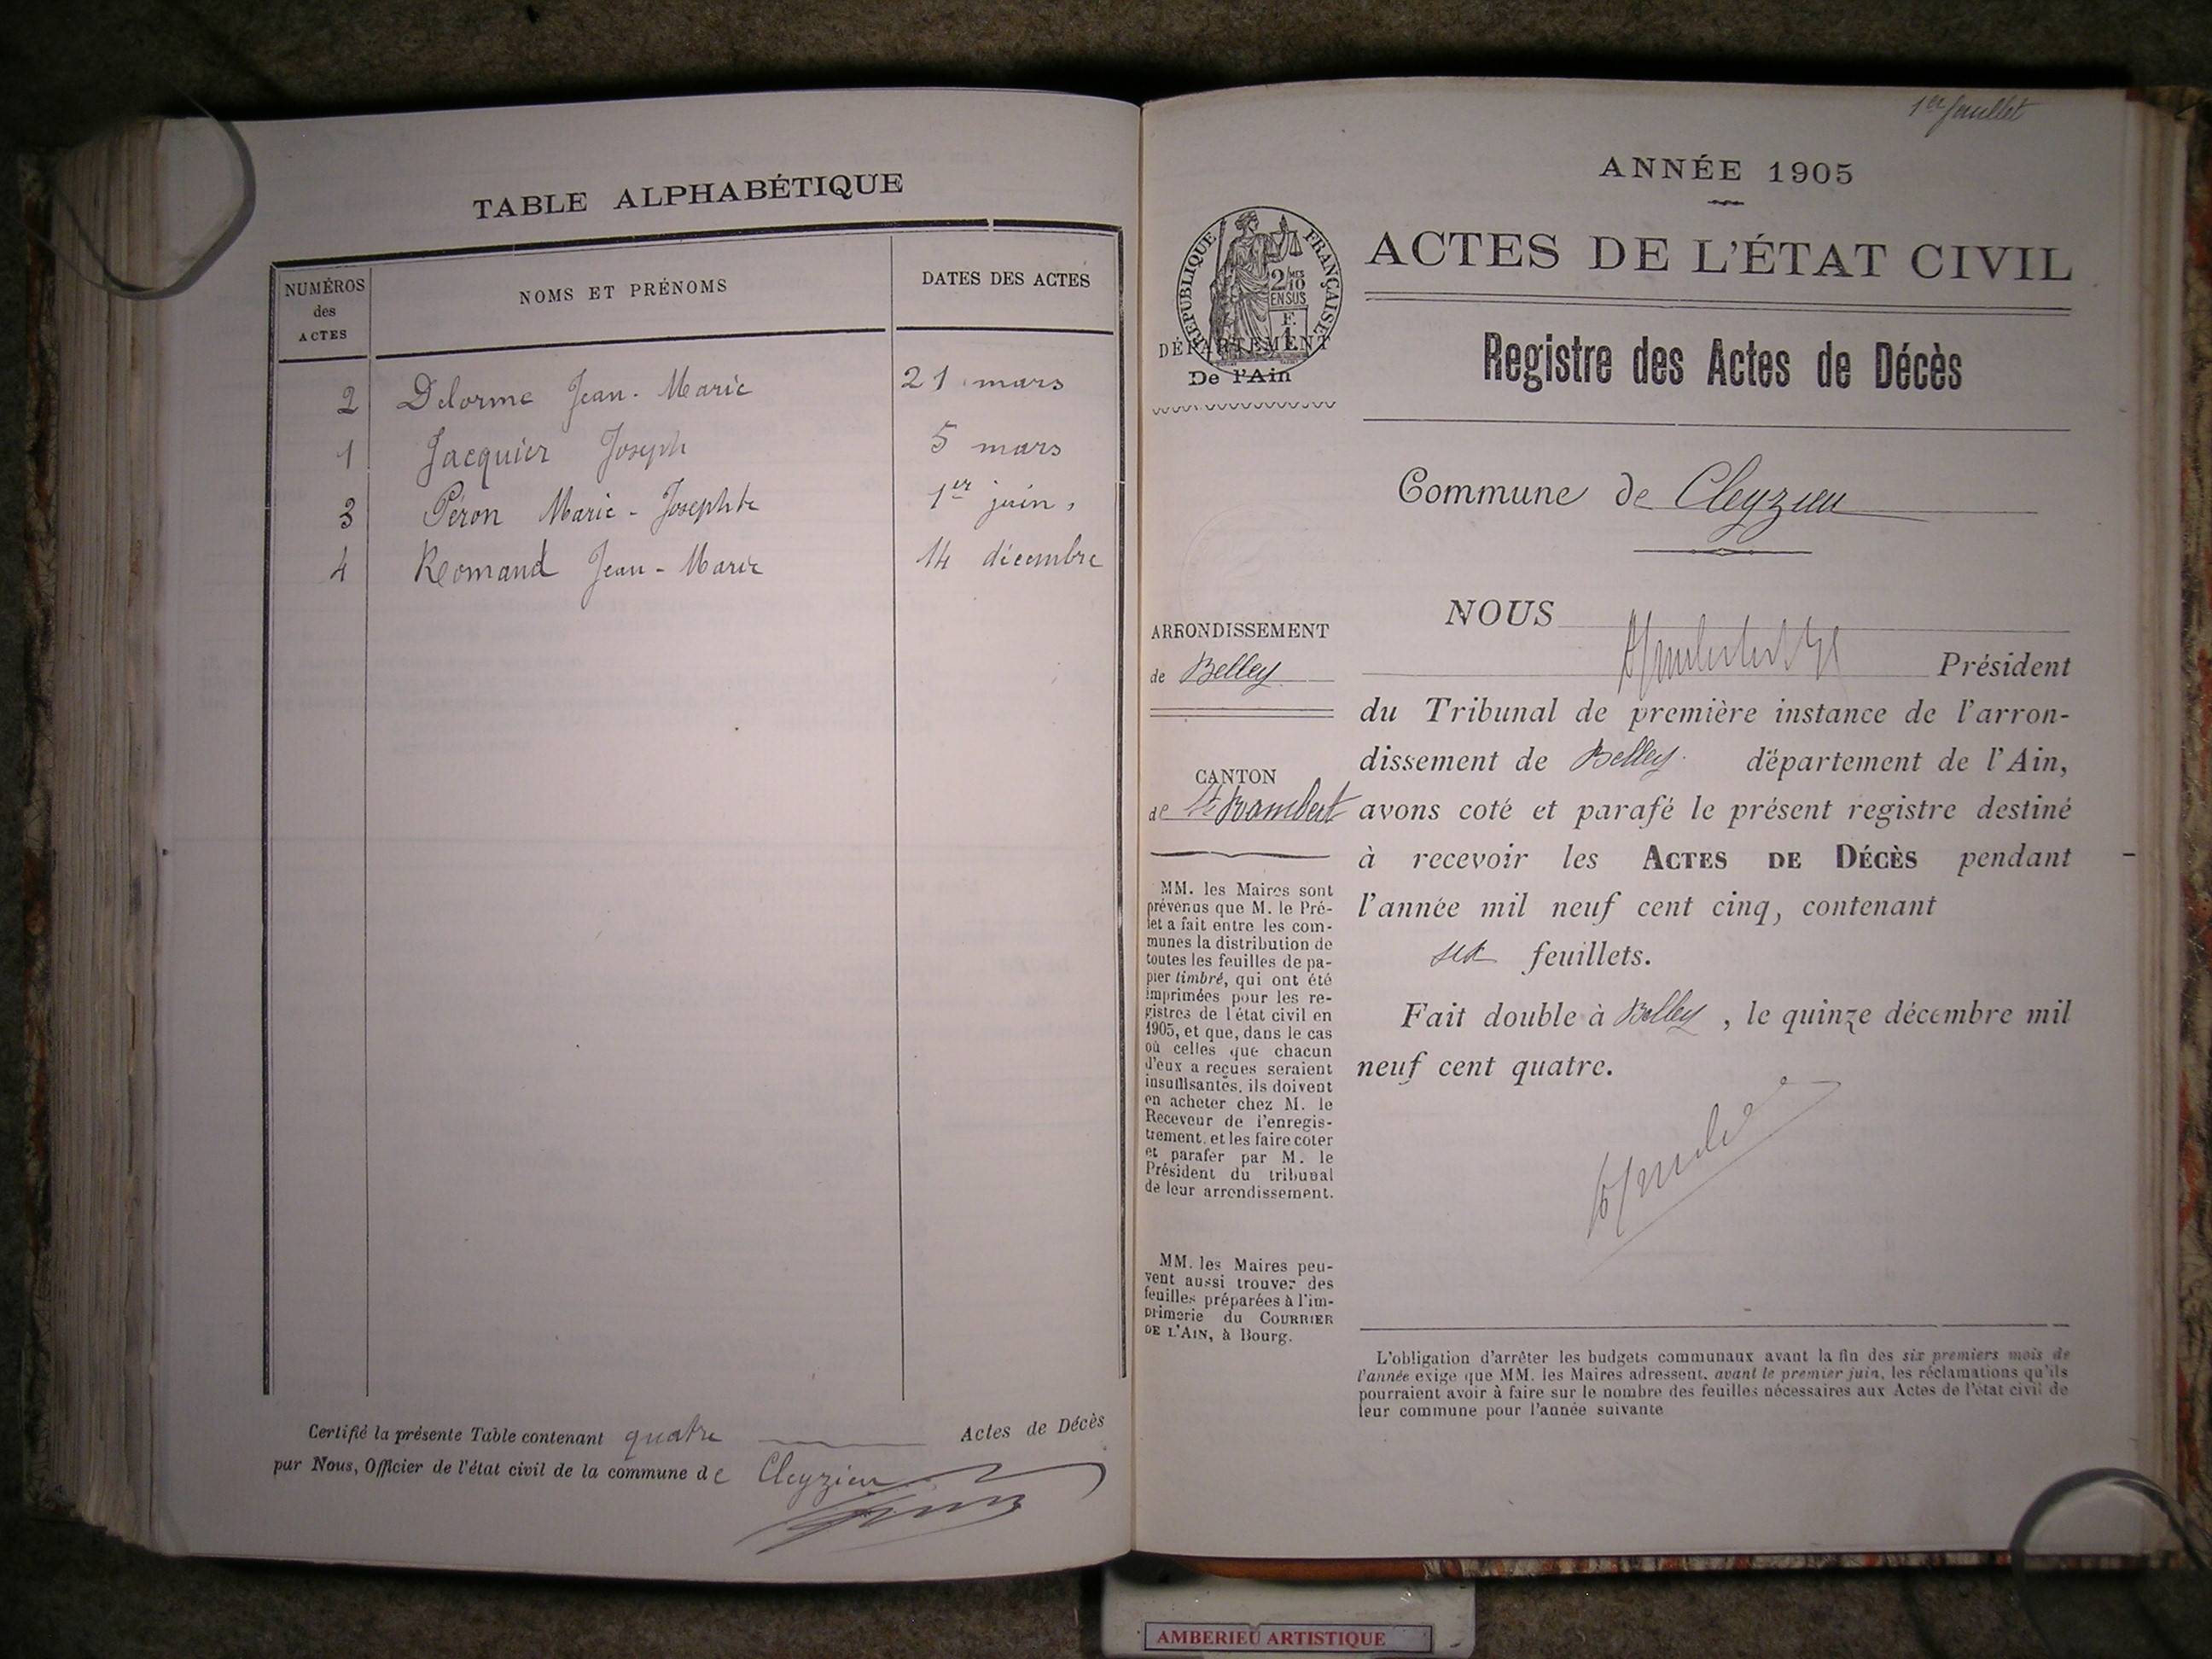 TABLE ALPHABÉTIQUE
NUMÉROS
des
ACTES
NOMS ET PRÉNOMS
DATES DES ACTES
2 Delorme Jean-Marie 21 mars
1 Jacquier Joseph 5 mars
3 Péron Marie-Josephte 1er juin
4 Romand Jean-Marie 14 décembre
Certifié la présente Table contenant quatre Actes de Décès
par Nous, Officier de l'état civil de la commune de Cleyzieu
1er feuillet
ANNÉE 1905
RÉPUBLIQUE FRANÇAISE
2/10 MES
EN SUS
F.
1
DÉPARTEMENT
De l'Ain
ACTES DE L'ÉTAT CIVIL
Registre des Actes de Décès
Commune de Cleyzieu
ARRONDISSEMENT
de Belley
CANTON
de St Rambert
MM. les Maires sont
prévenus que M. le Pré-
fet a fait entre les com-
munes la distribution de
toutes les feuilles de pa-
pier timbré, qui ont été
imprimées pour les re-
gistres de l'état civil en
1905, et que, dans le cas
où celles que chacun
d'eux a reçues seraient
insuffisantes, ils doivent
en acheter chez M. le
Receveur de l'enregis-
trement, et les faire coter
et parafer par M. le
Président du tribunal
de leur arrondissement.
MM. les Maires peu-
vent aussi trouver des
feuilles préparées à l'im-
primerie du COURRIER
DE L'AIN, à Bourg.
NOUS
Président
du Tribunal de première instance de l'arron-
dissement de Belley département de l'Ain,
avons coté et parafé le présent registre destiné
à recevoir les ACTES DE DÉCÈS pendant
l'année mil neuf cent cinq, contenant
six feuillets.
Fait double à Belley, le quinze décembre mil
neuf cent quatre.
L'obligation d'arrêter les budgets communaux avant la fin des six premiers mois de
l'année exige que MM. les Maires adressent, avant le premier juin, les réclamations qu'ils
pourraient avoir à faire sur le nombre des feuilles nécessaires aux Actes de l'état civil de
leur commune pour l'année suivante
AMBERIEU ARTISTIQUE